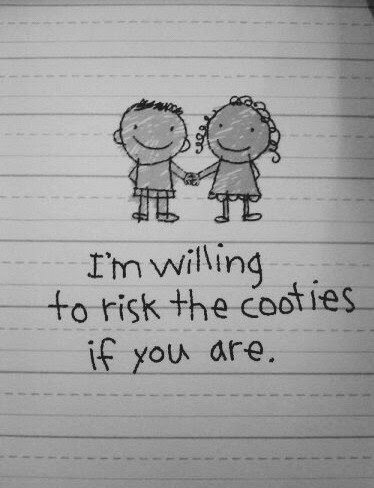 I'm willing
to risk the cooties
if you are.